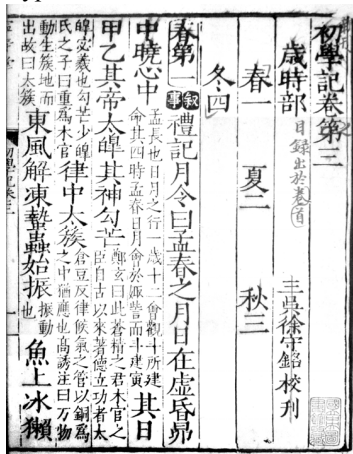 初學記卷第三
歲時部 目録出於卷首
三吳徐守銘校刊
春一 夏二 秋三
冬四
春第一 敘事 禮記月令曰孟春之月日在虛昏昴
中曉心中 孟長也日月之行一歲十二會觀斗所建命其四時孟春日月會於諏訾而斗建寅 其日
甲乙其帝太皥其神勾芒 鄭玄曰此蒼精之君木官之臣自古以來著德立功者太
皥宓羲也勾芒少皥氏之子曰重爲木官 律中太簇 倉豆反律候氣之管以銅爲之中猶應也高誘注曰万物
動生簇地而出故曰太簇 東風解凍蟄蟲始振 振動也 魚上冰獺